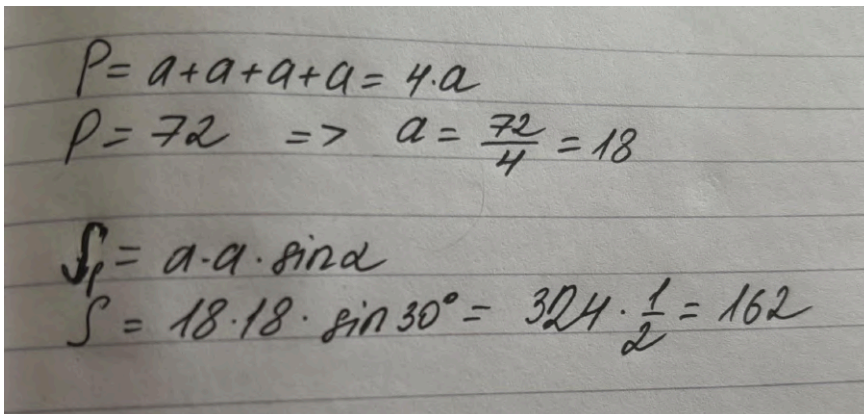 P = a + a + a + a = 4 · a
P = 72 => a = 72/4 = 18
Sₚ = a · a · sin α
S = 18 · 18 · sin 30° = 324 · 1/2 = 162